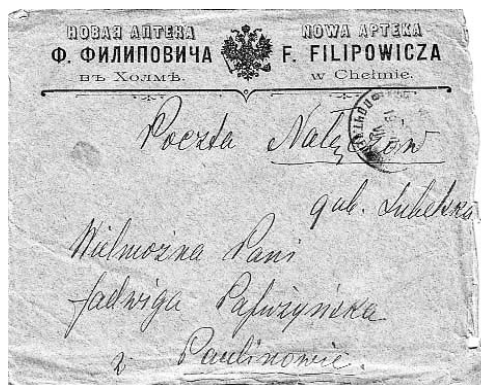 НОВАЯ АПТЕКА
Ф. ФИЛИПОВИЧА
въ Холмѣ.
NOWA APTEKA
F. FILIPOWICZA
w Chełmie.
Poczta Nałęczów
gub. Lubelska
Wielmożna Pani
Jadwiga
w Paulinowie.